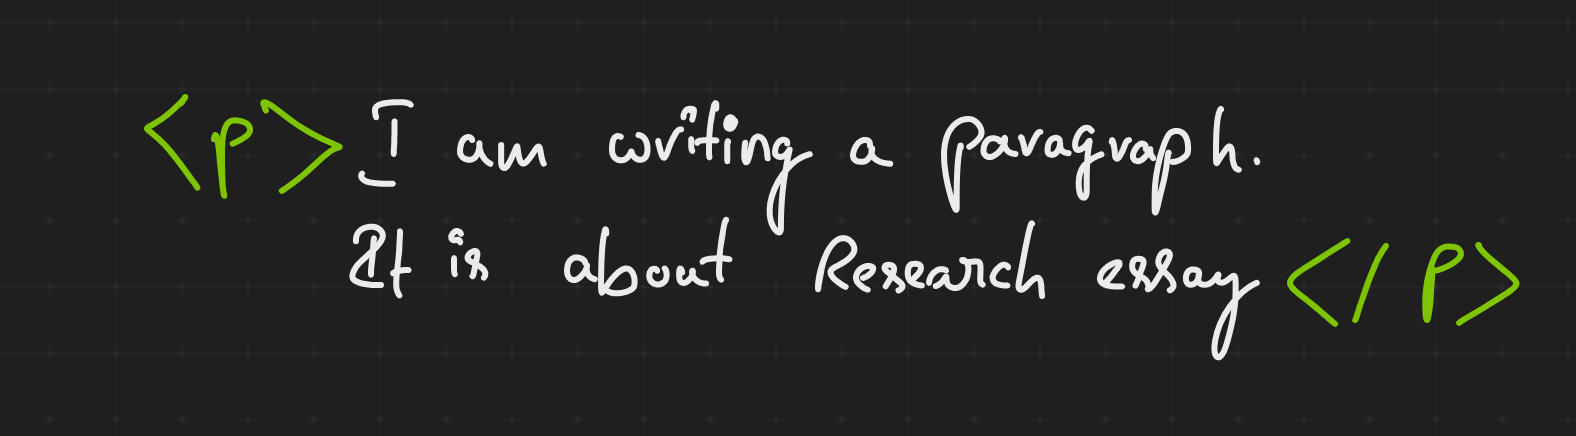 <p>I am writing a paragraph.
It is about Research essay</p>